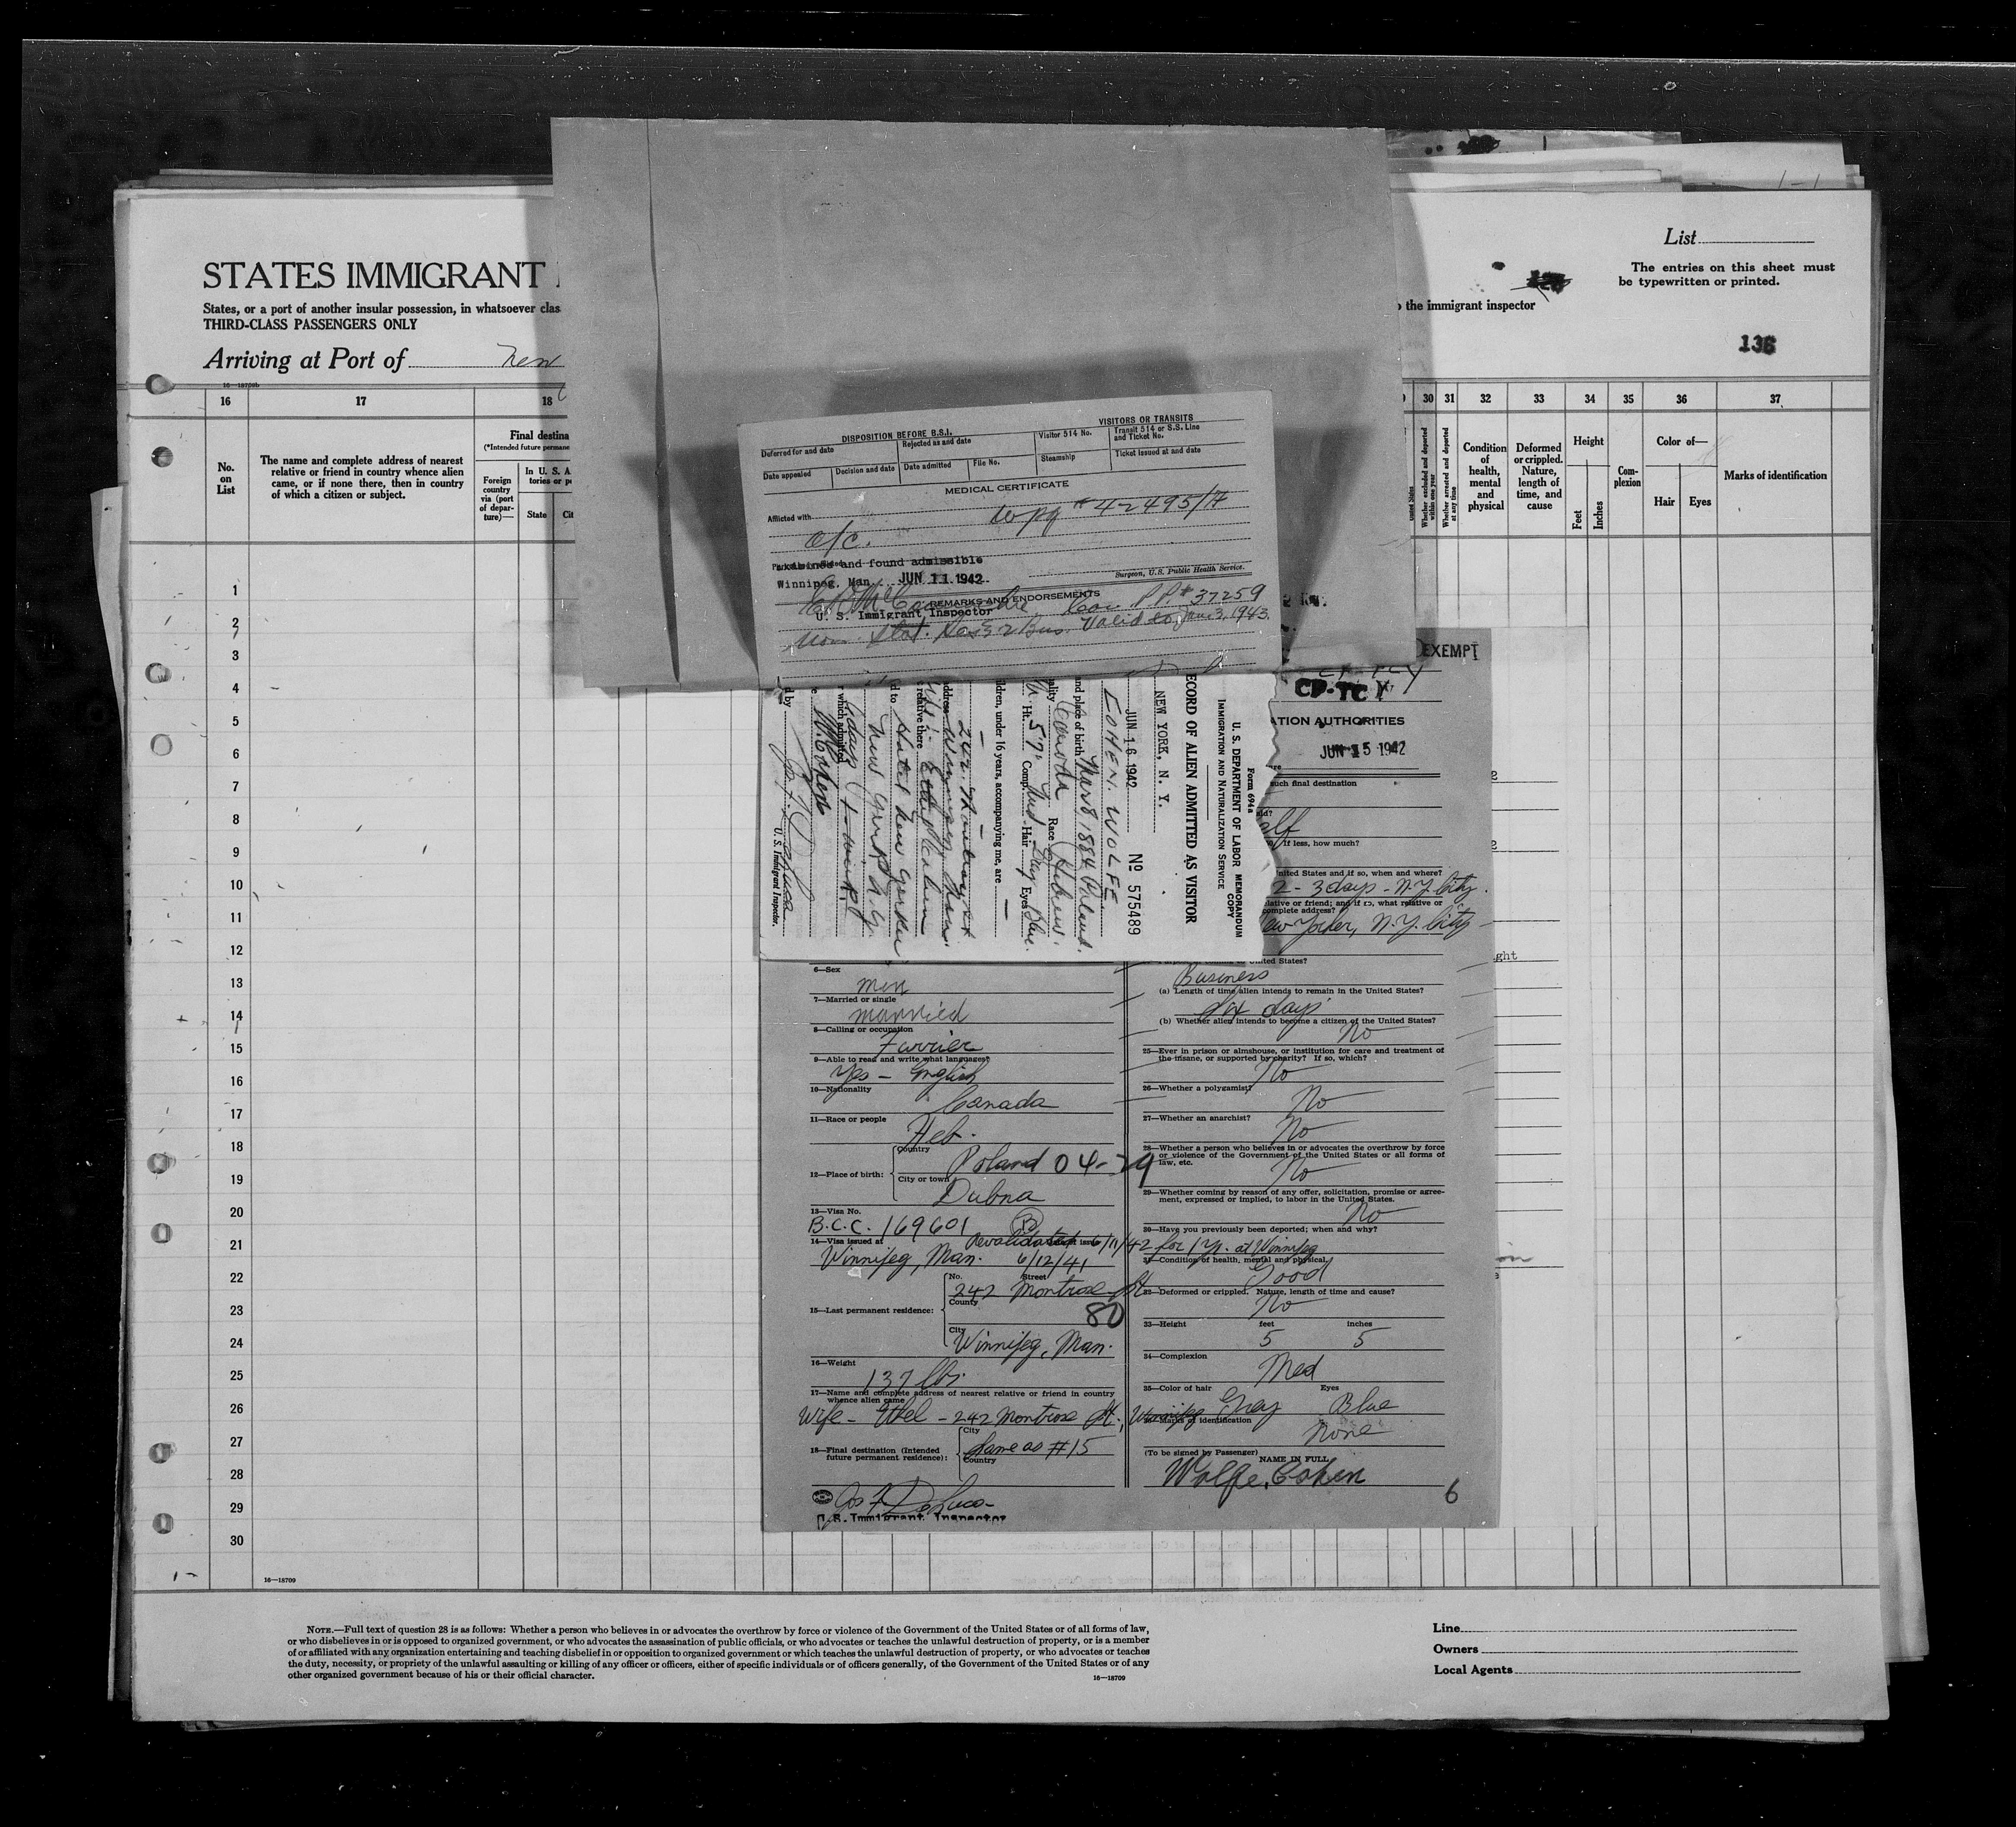 List
The entries on this sheet must
be typewritten or printed.
STATES IMMIGRANT
States, or a port of another insular possession, in whatsoever clas
the immigrant inspector
THIRD-CLASS PASSENGERS ONLY
136
Arriving at Port of New
16—18709b
16 17 18
30 31 32 33 34 35 36 37
No.
on
List
The name and complete address of nearest
relative or friend in country whence alien
came, or if none there, then in country
of which a citizen or subject.
Final destina
(*Intended future permane
Foreign
country
via (port
of depar-
ture)—
In U. S. A
tories or p
State
Whether excluded and deported
within one year
Whether arrested and deported
at any time
Condition
of
health,
mental
and
physical
Deformed
or crippled.
Nature,
length of
time, and
cause
Height
Feet
Inches
Com-
plexion
Color of—
Hair
Eyes
Marks of identification
1
2
3
4
5
6
7
8
9
10
11
12
13
14
15
16
17
18
19
20
21
22
23
24
25
26
27
28
29
30
16—18709
DISPOSITION BEFORE B.S.I.
VISITORS OR TRANSITS
Deferred for and date
Rejected as and date
Visitor 514 No.
Transit 514 or S.S. Line
and Ticket No.
Date appealed
Decision and date
Date admitted
File No.
Steamship
Ticket issued at and date
MEDICAL CERTIFICATE
Afflicted with
Wpg #42495/A
o/c.
and found admissible
Winnipeg, Man. JUN 11 1942
Surgeon, U.S. Public Health Service.
REMARKS AND ENDORSEMENTS
Can PP# 37259
U. S. Immigrant Inspector
Valid to Jan 3, 1943.
Form 694a
U. S. DEPARTMENT OF LABOR
IMMIGRATION AND NATURALIZATION SERVICE
MEMORANDUM
COPY
RECORD OF ALIEN ADMITTED AS VISITOR
NEW YORK, N. Y.
JUN 16 1942
No 575489
COHEN, WOLFE
and place of birth Mar 8 1884 Poland.
ality Canada Race Hebrew.
Ht. 5'7" Comp. Med Hair Gray Eyes Blue.
ildren, under 16 years, accompanying me, are —
Winnipeg Man
relative there
Hotel New Yorker
New York N.Y.
which admitted
W. Cohen
U. S. Immigrant Inspector.
EXEMPT
CP-TCY
ATION AUTHORITIES
JUN 15 1942
such final destination
elf
If less, how much?
United States and if so, when and where?
2 - 3 days - N.Y. City.
lative or friend; and if so, what relative or
complete address?
ew Yorker, N.Y. City
ited States?
Business
(a) Length of time alien intends to remain in the United States?
Six days
(b) Whether alien intends to become a citizen of the United States?
No
25—Ever in prison or almshouse, or institution for care and treatment of
the insane, or supported by charity? If so, which?
No
26—Whether a polygamist?
No
27—Whether an anarchist?
No
28—Whether a person who believes in or advocates the overthrow by force
or violence of the Government of the United States or all forms of
law, etc.
No
29—Whether coming by reason of any offer, solicitation, promise or agree-
ment, expressed or implied, to labor in the United States.
No
30—Have you previously been deported; when and why?
31—Condition of health, mental and physical.
Good
32—Deformed or crippled. Nature, length of time and cause?
No
33—Height feet inches
5 5
34—Complexion
Med
35—Color of hair Eyes
Gray Blue
36—Marks of identification
None
(To be signed by Passenger)
NAME IN FULL
Wolfe, Cohen
6
6—Sex
man
7—Married or single
married
8—Calling or occupation
Furrier
9—Able to read and write what languages?
Yes - English
10—Nationality
Canada
11—Race or people
Heb.
12—Place of birth:
Country
Poland 04-29
City or town
Dubna
13—Visa No.
B.C.C. 169601 B
14—Visa issued at
Revalidated 6/11/42 for 1 yr. at Winnipeg
Winnipeg, Man. 6/12/41
15—Last permanent residence:
No. Street
242 Montrose St.
County
80
City
Winnipeg, Man.
16—Weight
137 lbs.
17—Name and complete address of nearest relative or friend in country
whence alien came
Wife - Ethel - 242 Montrose St., Winnipeg
18—Final destination (Intended
future permanent residence):
City
Same as #15
Country
Jos F. DeLuca
U.S. Immigrant Inspector
NOTE.—Full text of question 28 is as follows: Whether a person who believes in or advocates the overthrow by force or violence of the Government of the United States or of all forms of law,
or who disbelieves in or is opposed to organized government, or who advocates the assassination of public officials, or who advocates or teaches the unlawful destruction of property, or is a member
of or affiliated with any organization entertaining and teaching disbelief in or opposition to organized government or which teaches the unlawful destruction of property, or who advocates or teaches
the duty, necessity, or propriety of the unlawful assaulting or killing of any officer or officers, either of specific individuals or of officers generally, of the Government of the United States or of any
other organized government because of his or their official character.
16—18709
Line
Owners
Local Agents